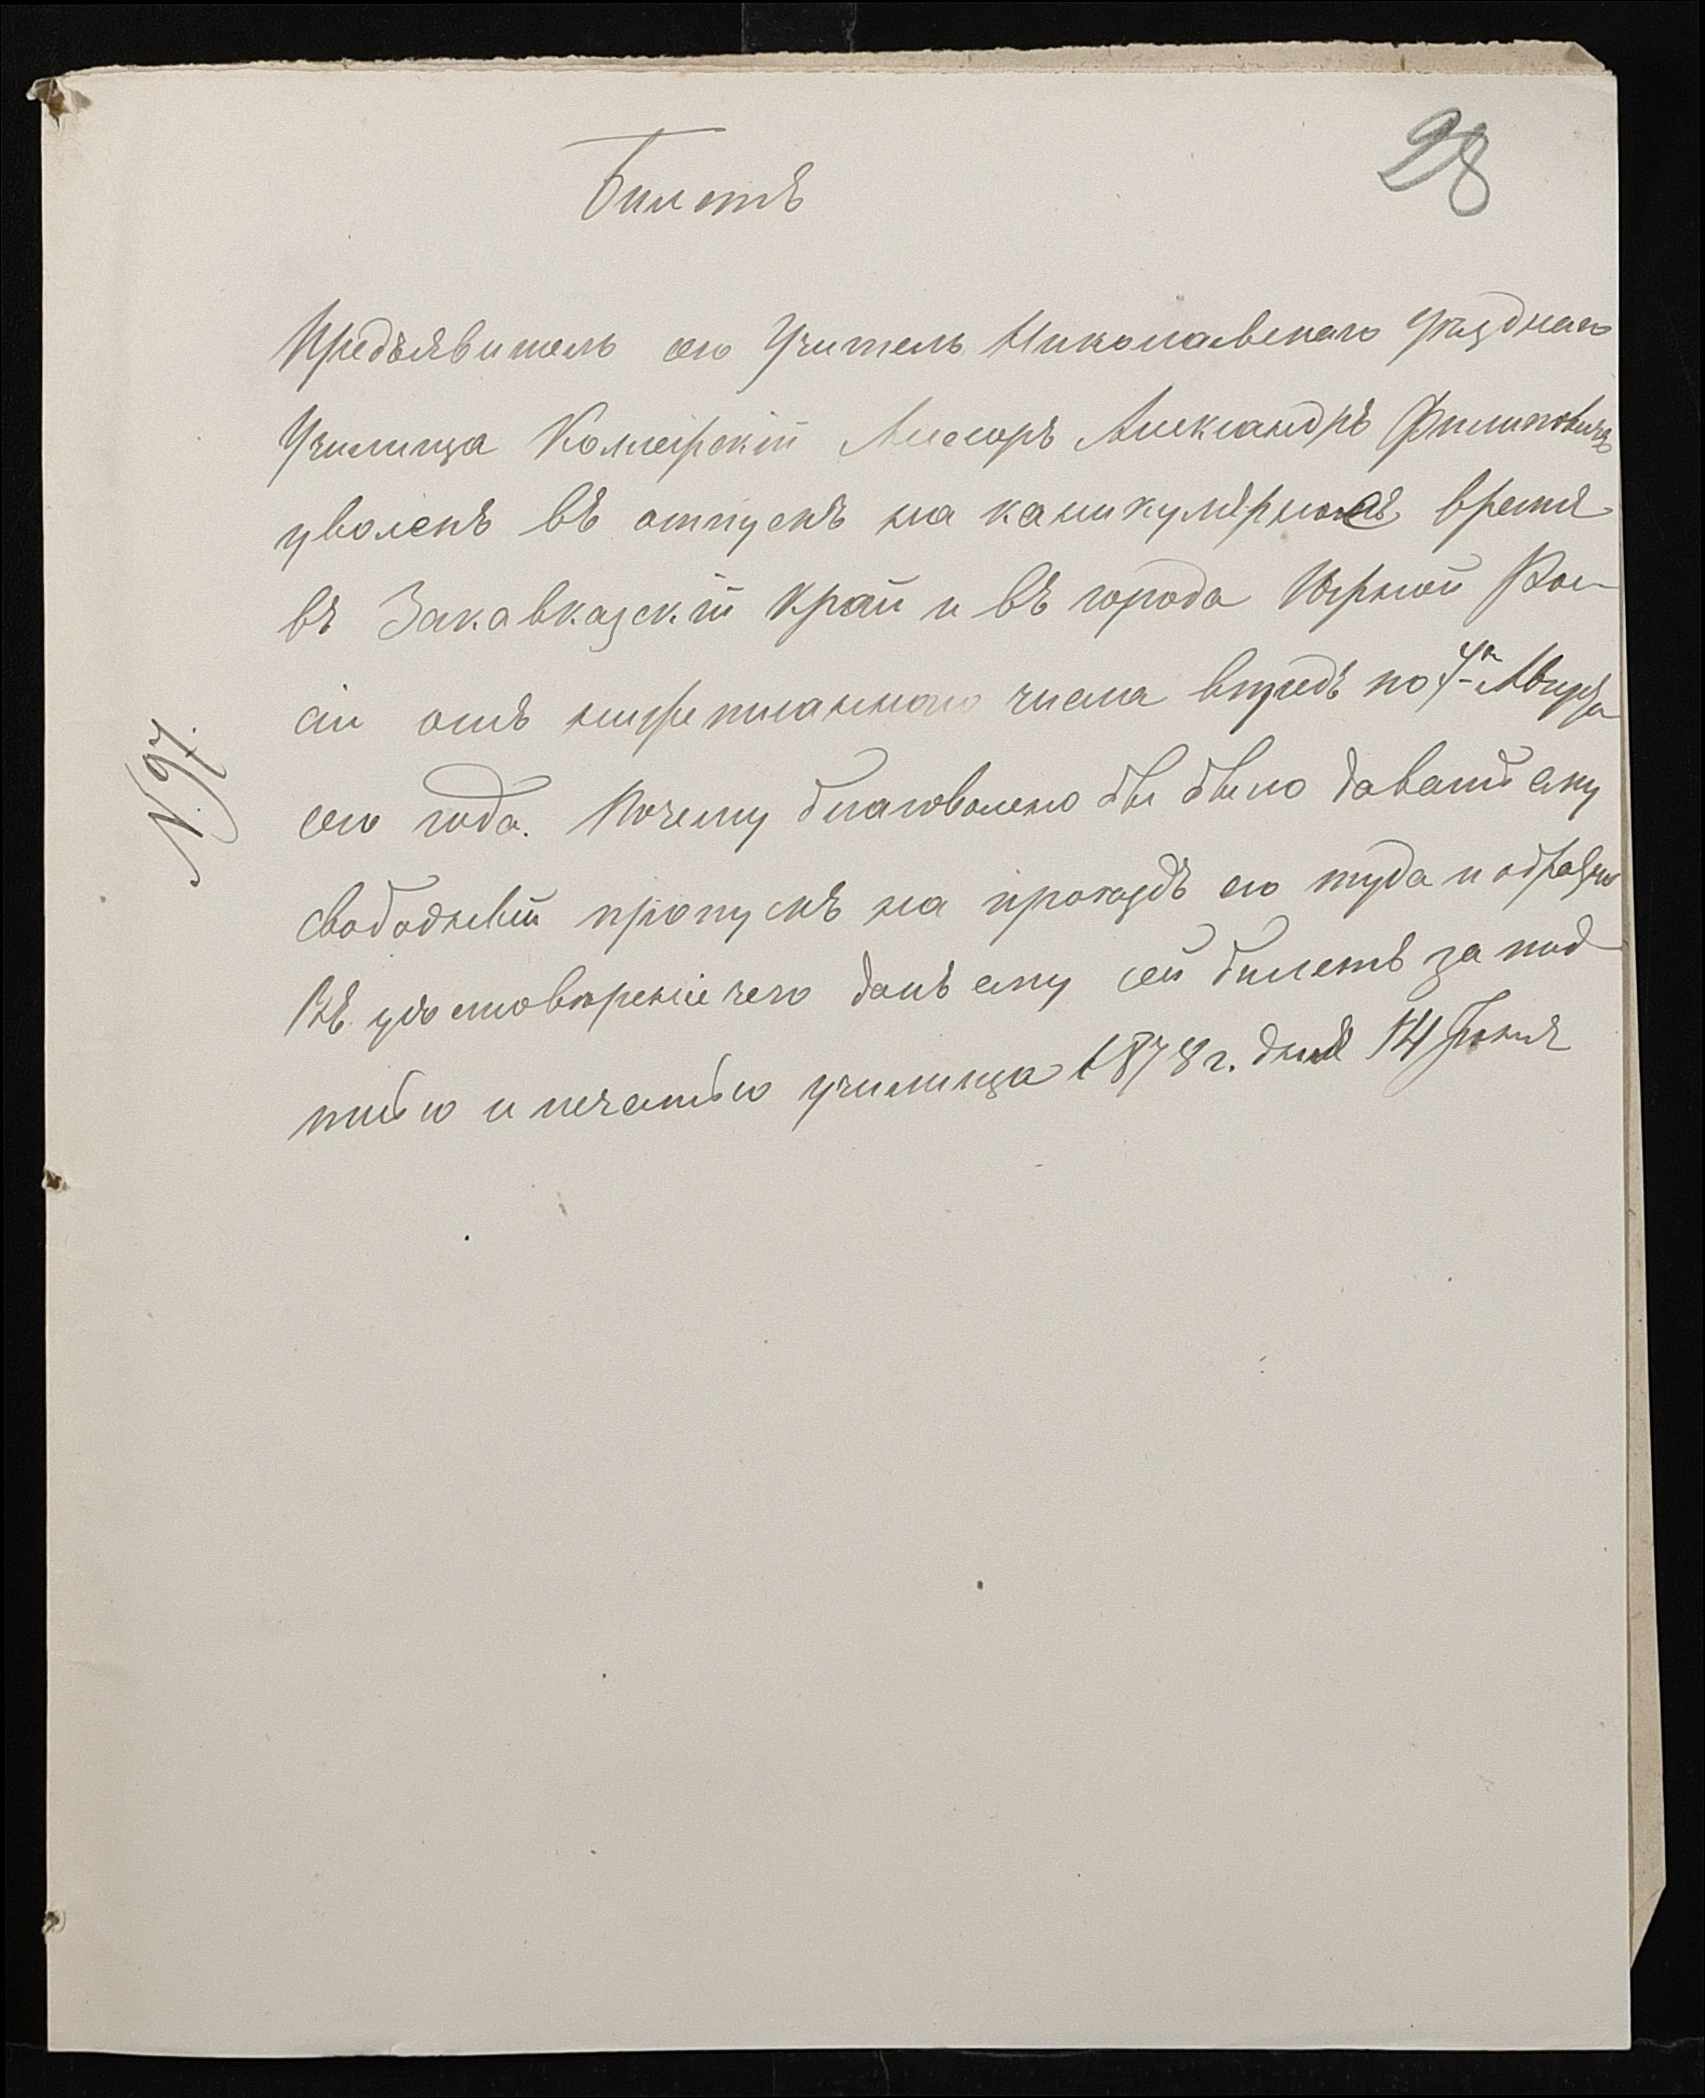 28
Билетъ
Предъявитель сего Учитель Николаевскаго Уѣзднаго
Училища Колежскій Ассесоръ Александръ Филиповичъ
уволенъ въ отпускъ на каникулярное время
въ Закавказскій край и въ города Южной Рос-
сіи отъ нижеписаннаго числа впредь по Августа
сего года. Почему благоволено бы было давать ему
свободный пропускъ на проѣздъ его туда и обратно
Въ удостовѣреніе чего данъ ему сей билетъ за под
писью и печатью училища 1878 г. дня 14 Іюня
N. 97.